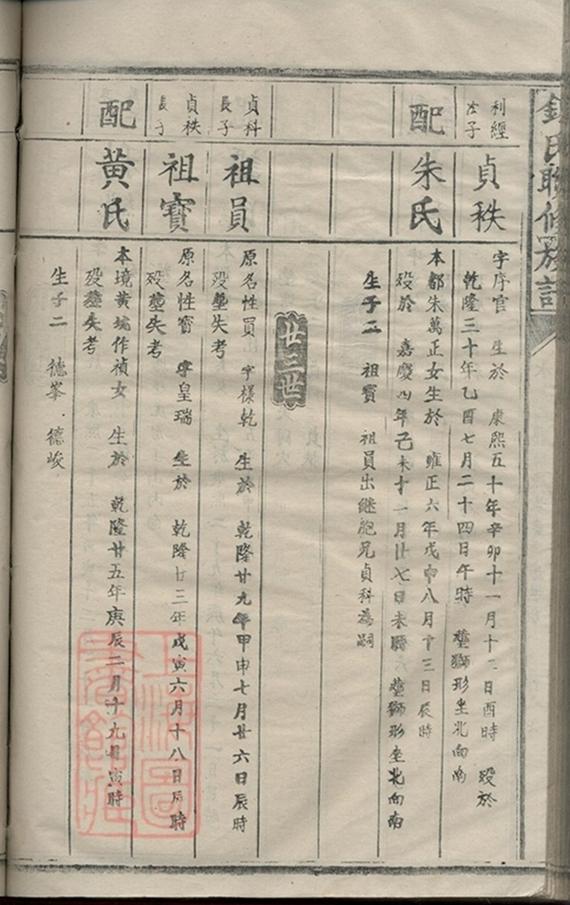 氏聯修族譜
利經次子
貞秩
字序官 生於 康熙五十年辛卯十一月十二日酉時 歿於
乾隆三十年乙酉七月二十四日午時 塟獅形坐北向南
配
朱氏
本都朱萬正女生於 雍正六年戊申八月十三日辰時
歿於 嘉慶四年己未十一月廿七日未時 塟獅形坐北向南
生子二 祖寶 祖員出繼胞兄貞科為嗣
廿三世
貞科長子
祖員
原名性員 字樣乾 生於 乾隆廿九年甲申七月廿六日辰時
歿塟失考
貞秩長子
祖寶
原名性寶 字皇瑞 生於 乾隆廿三年戊寅六月十八日辰時
歿塟失考
配
黃氏
本境黃瑞作禎女 生於 乾隆廿五年庚辰二月十九日寅時
歿塟失考
生子二 德峯 德峻